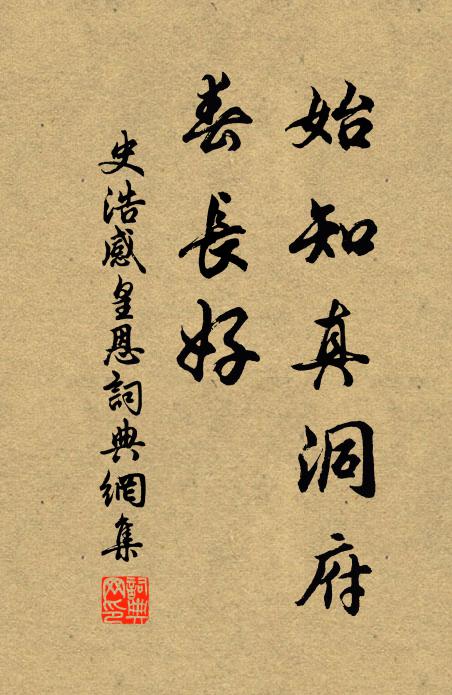 始知真洞府
春長好
史浩感皇恩詞典網集
詞典
网印